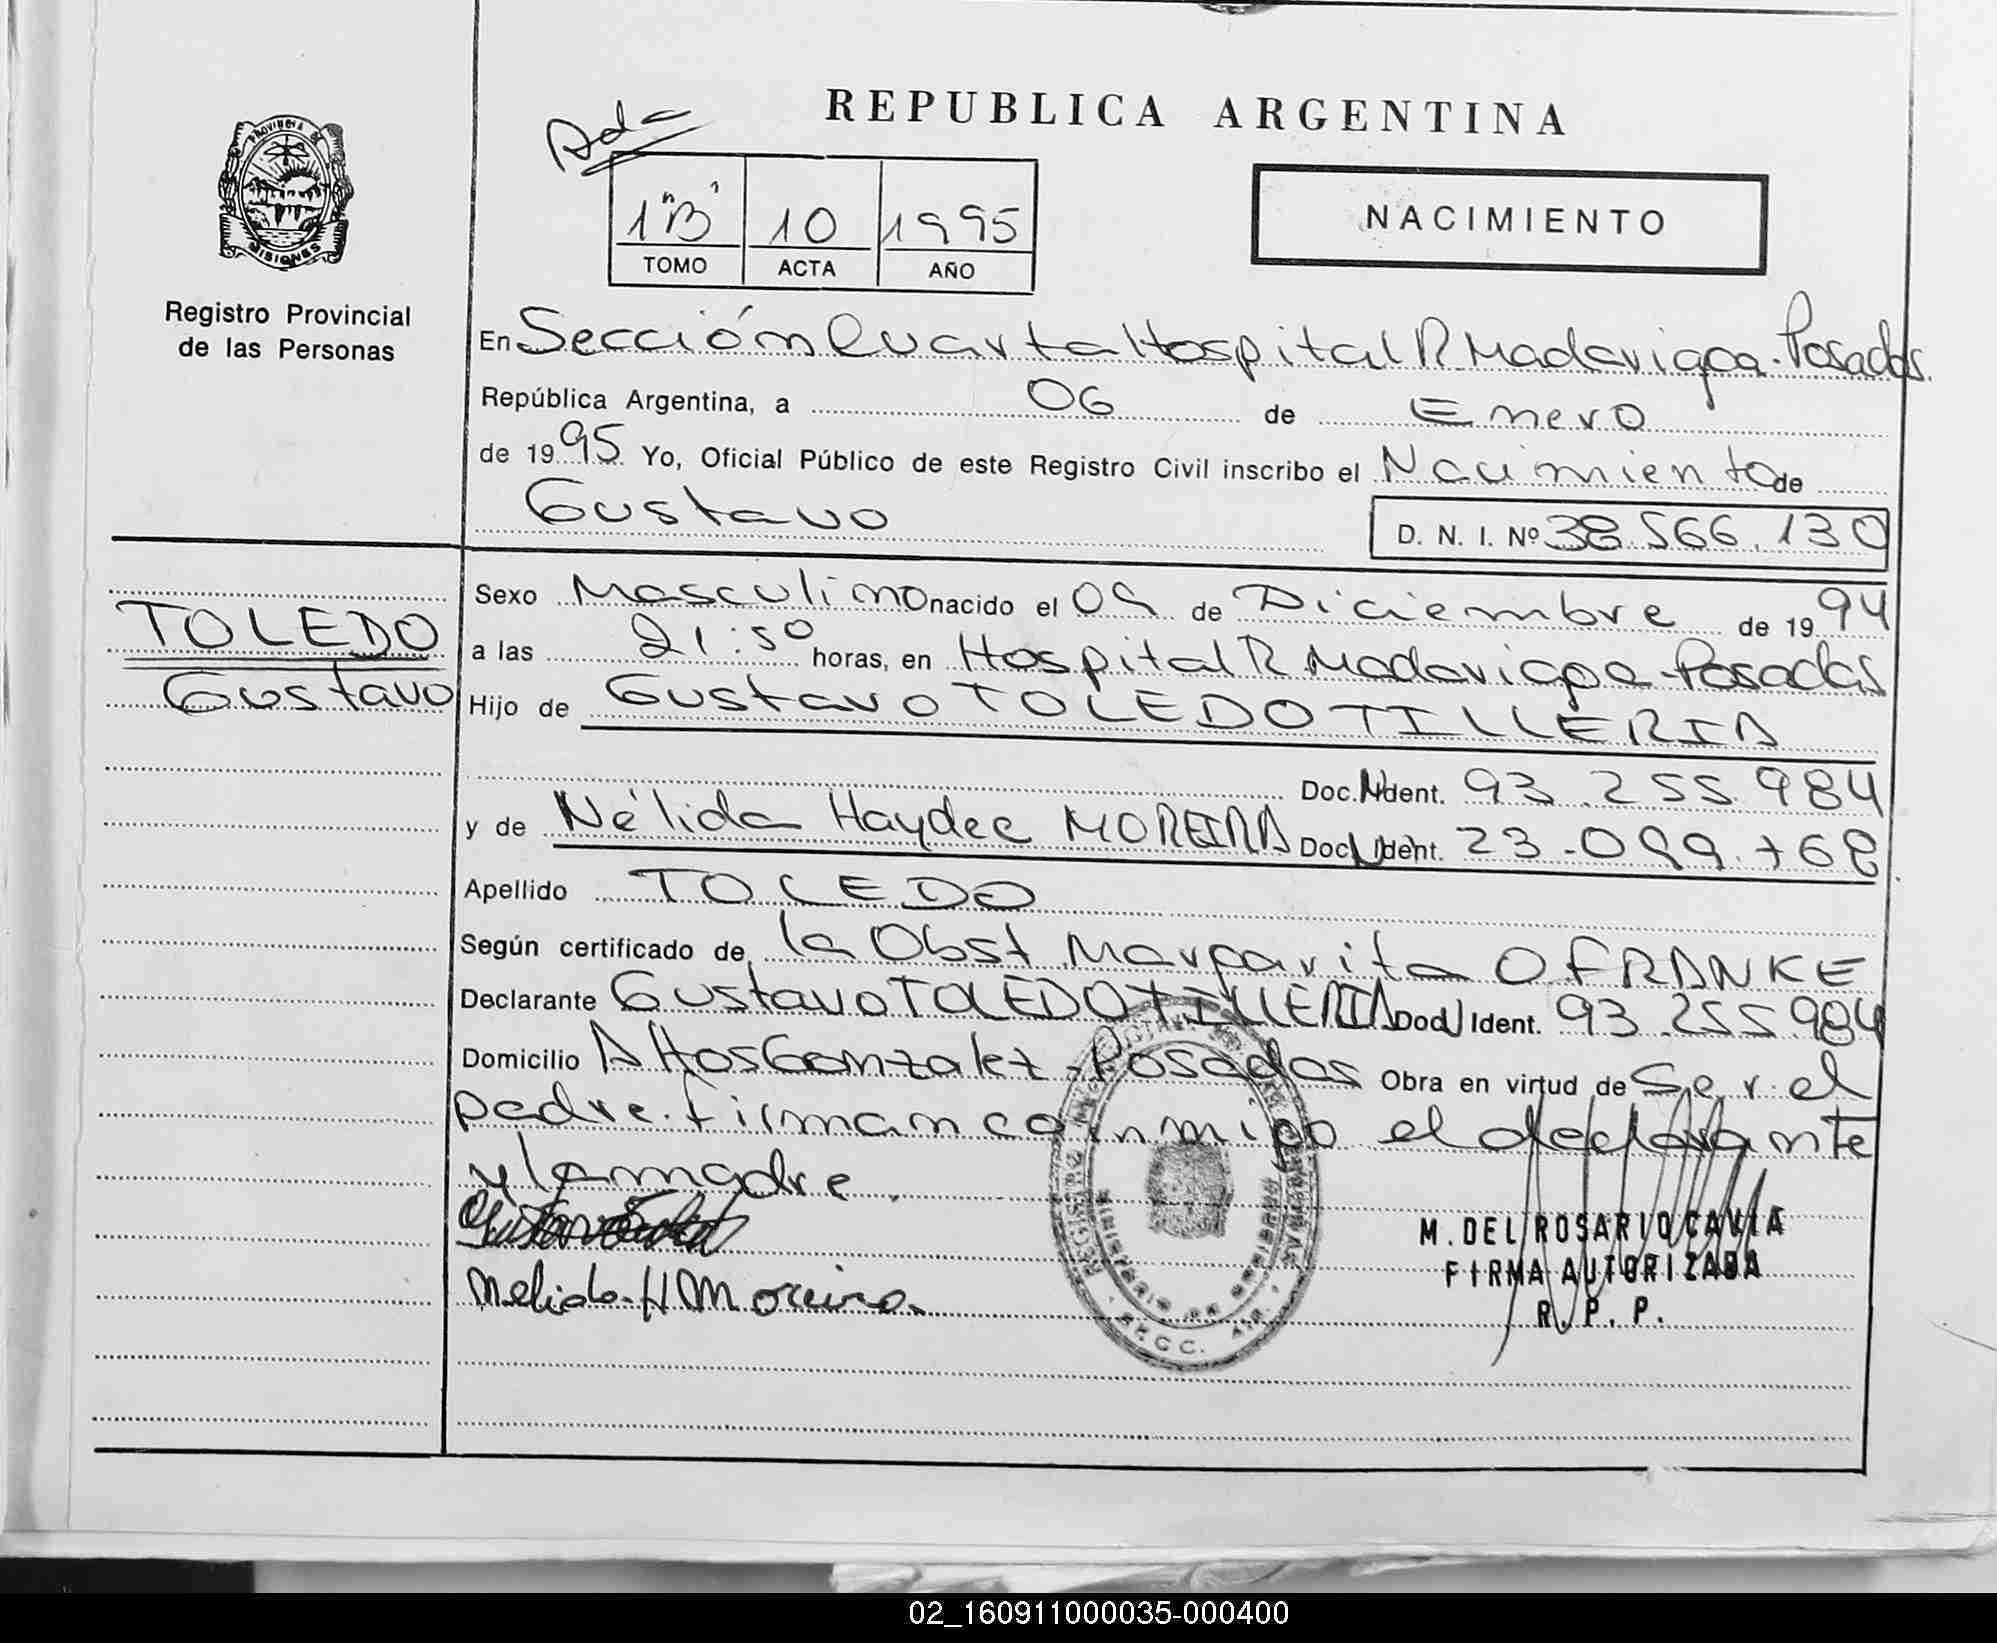 REPUBLICA ARGENTINA
Adc
1"B" 10 1995
TOMO ACTA AÑO
NACIMIENTO
PROVINCIA DE
MISIONES
Registro Provincial
de las Personas
En Sección Cuarta Hospital R Madariaga - Posadas
República Argentina, a 06 de Enero
de 1995 Yo, Oficial Público de este Registro Civil inscribo el Nacimiento de
Gustavo
D. N. I. Nº 38.566.130
TOLEDO
Gustavo
Sexo Masculino nacido el 09 de Diciembre de 1994
a las 21:50 horas, en Hospital R Madariaga - Posadas
Hijo de Gustavo TOLEDO TILLERIA
Doc. N Ident. 93.255.984
y de Nélida Haydee MOREIRA Doc N Ident. 23.099.768
Apellido TOLEDO
Según certificado de la Obst Margarita O FRANKE
Declarante Gustavo TOLEDO TILLERIA Doc N Ident. 93.255984
Domicilio Altos Gonzalez - Posadas Obra en virtud de Ser el
padre. firman conmigo el declarante
y la madre.
Nelida. H Moreira.
MINISTERIO DE GOBIERNO
M. DEL ROSARIO CAVIA
FIRMA AUTORIZADA
R. P. P.
02_160911000035-000400